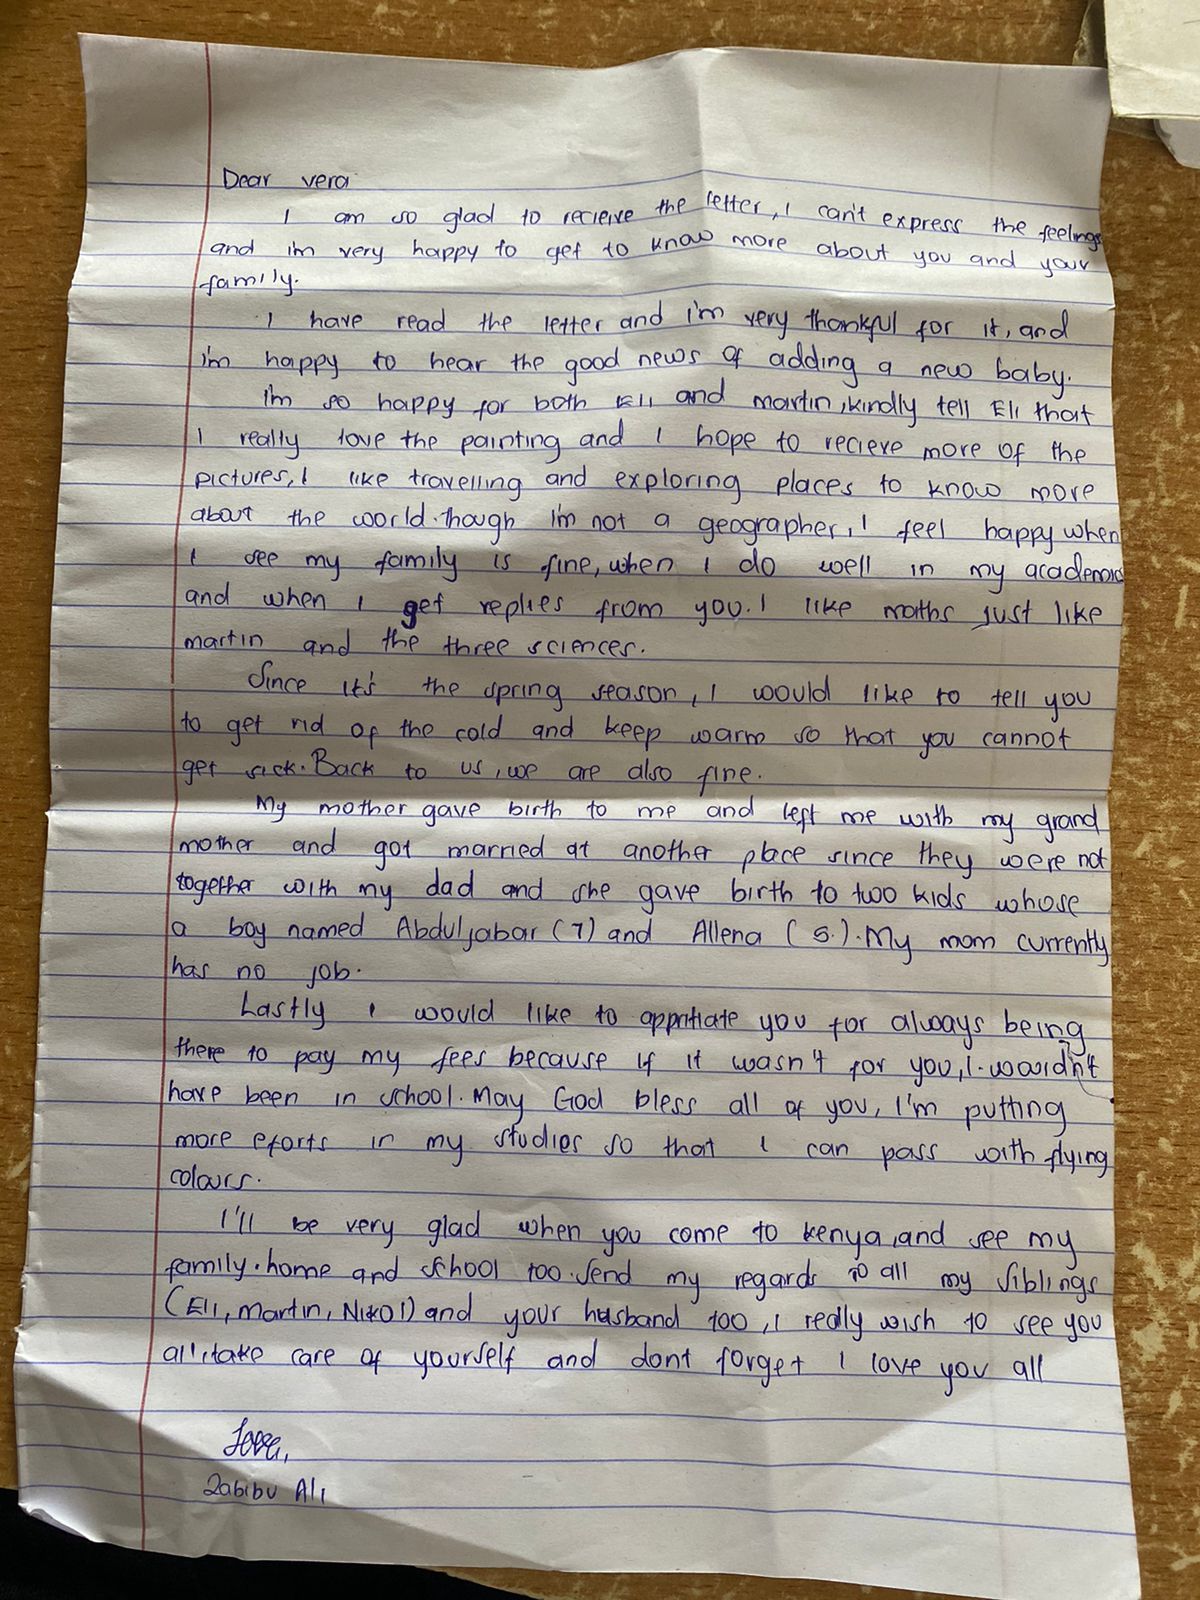 Dear vera
I am so glad to recieive the letter, I can't express the feelings
and i'm very happy to get to know more about you and your
family.
I have read the letter and i'm very thankful for it, and
i'm happy to hear the good news of adding a new baby.
i'm so happy for both Eli and martin, kindly tell Eli that
I really love the painting and I hope to recieve more of the
pictures, I like travelling and exploring places to know more
about the world. though I'm not a geographer, I feel happy when
I see my family is fine, when I do well in my academic
and when I get replies from you. I like maths just like
martin and the three sciences.
Since it's the spring season, I would like to tell you
to get rid of the cold and keep warm so that you cannot
get sick. Back to us, we are also fine.
My mother gave birth to me and left me with my grand
mother and got married at another place since they were not
together with my dad and she gave birth to two kids whose
a boy named Abduljabar (7) and Allena (5.). My mom currently
has no job.
Lastly I would like to appritiate you for always being
there to pay my fees because if it wasn't for you, I. wouldn't
have been in school. May God bless all of you, I'm putting
more eforts in my studies so that I can pass with flying
colours.
I'll be very glad when you come to kenya, and see my
family. home and school too. Send my regards to all my siblings
(Eli, martin, Nikol) and your husband too, I really wish to see you
all, take care of yourself and dont forget I love you all
Love,
Zabibu Ali